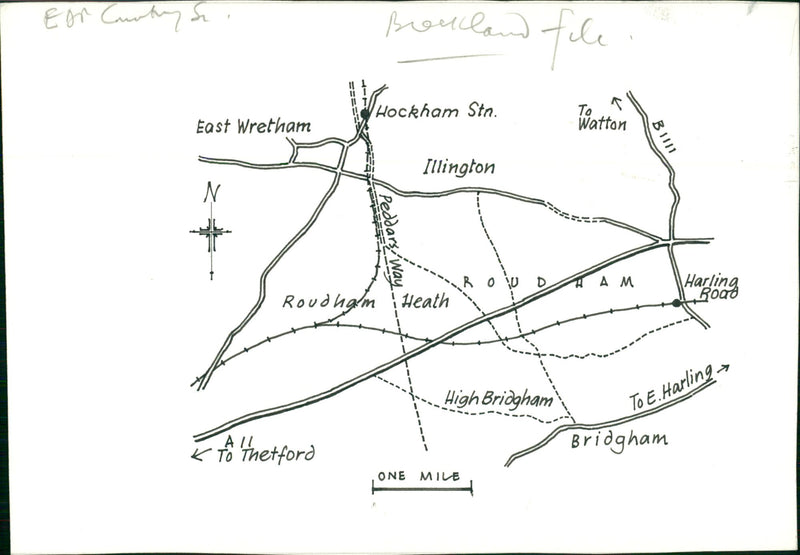 Breckland file.
Hockham Stn.
East Wretham
To
Watton
B1111
Illington
N
Peddars Way
ROUDHAM
Harling
Road
Roudham Heath
High Bridgham
To E. Harling
Bridgham
A11
To Thetford
ONE MILE